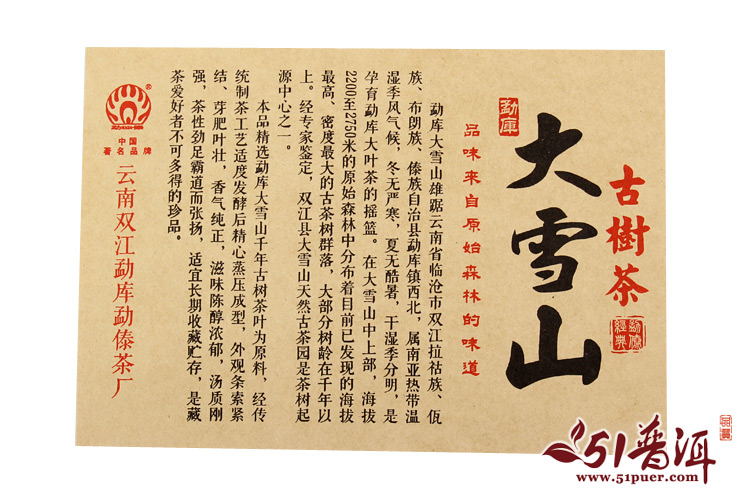 古樹茶
勐傣
經典
大雪山
勐库
品味来自原始森林的味道
勐库大雪山雄踞云南省临沧市双江拉祜族、佤
族、布朗族、傣族自治县勐库镇西北，属南亚热带温
湿季风气候，冬无严寒，夏无酷暑，干湿季分明，是
孕育勐库大叶茶的摇篮。在大雪山中上部，海拔
2200至2750米的原始森林中分布着目前已发现的海拔
最高、密度最大的古茶树群落，大部分树龄在千年以
上。经专家鉴定，双江县大雪山天然古茶园是茶树起
源中心之一。
本品精选勐库大雪山千年古树茶叶为原料，经传
统制茶工艺适度发酵后精心蒸压成型，外观条索紧
结、芽肥叶壮，香气纯正，滋味陈醇浓郁，汤质刚
强，茶性劲足霸道而张扬，适宜长期收藏贮存，是藏
茶爱好者不可多得的珍品。
®
中国
著名品牌
云南双江勐库勐傣茶厂
51普洱
www.51puer.com